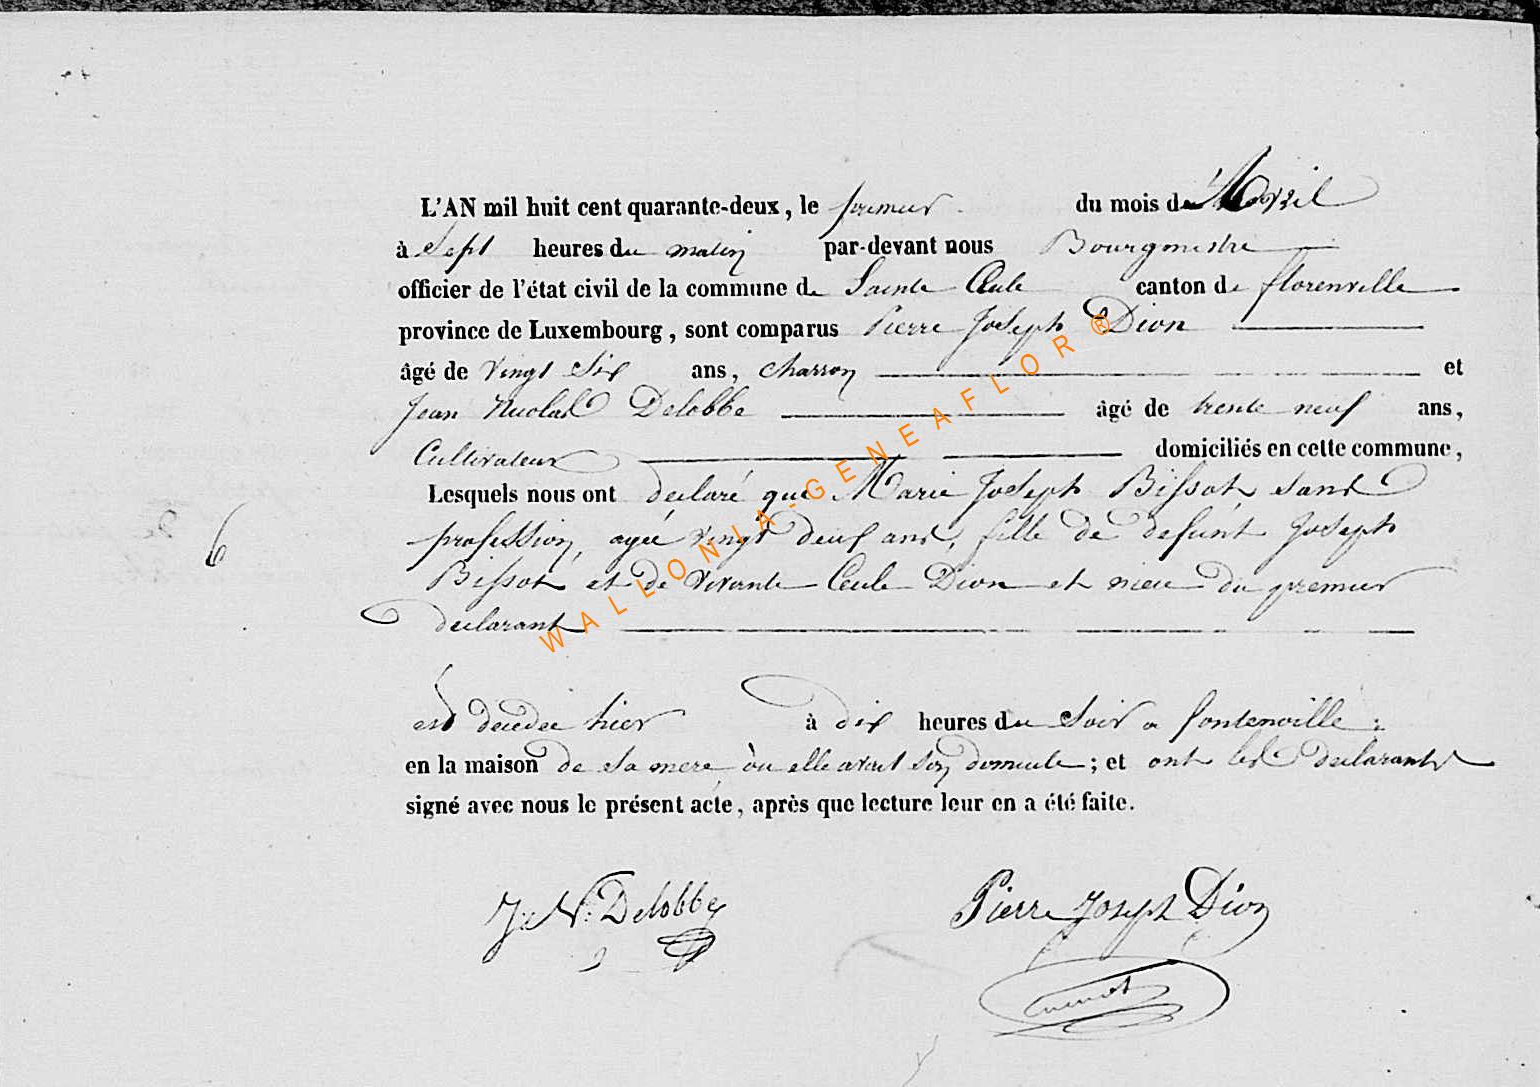 L'AN mil huit cent quarante-deux, le premier du mois de Avril
à Sept heures du matin par-devant nous Bourgmestre
officier de l'état civil de la commune de Sainte Cécile canton de florenville
province de Luxembourg, sont comparus Pierre Joseph Dion
âgé de vingt Six ans, charron et
Jean Nicolas Delobbe âgé de trente neuf ans,
Cultivateur domiciliés en cette commune,
Lesquels nous ont declaré que Marie Joseph Bissot, sans
6 profession, agée vingt deux ans, fille de defunt Joseph
Bissot et de vivante Cecile Dion et niece du premier
declarant
est decedee hier à dix heures du Soir a fontenoille;
en la maison de sa mere où elle avait son domicile; et ont les declarants
signé avec nous le présent acte, après que lecture leur en a été faite.
J: N: Delobbe Pierre Joseph Dion
WALLONIA-GENEAFLOR®